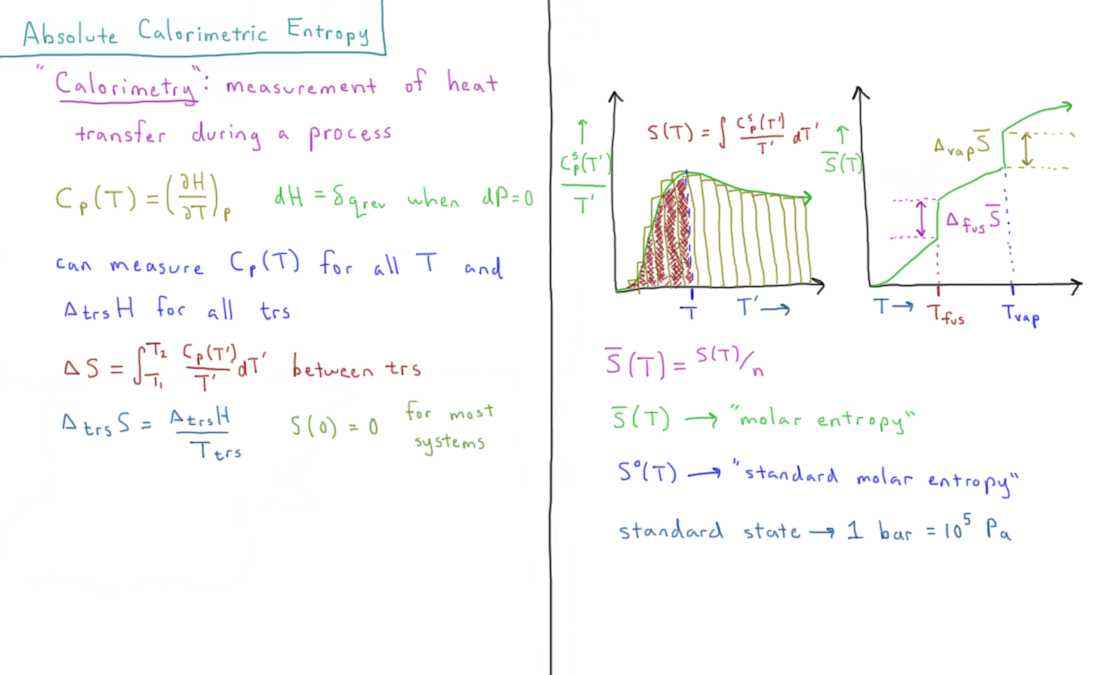 Absolute Calorimetric Entropy
"Calorimetry": measurement of heat
transfer during a process
Cₚ(T) = (∂H/∂T)ₚ   dH = δq_rev when dP=0
can measure Cₚ(T) for all T and
Δ_trs H for all trs
ΔS = ∫_T₁^T₂ Cₚ(T')/T' dT' between trs
Δ_trs S = Δ_trs H / T_trs   S(0) = 0 for most
systems
S(T) = ∫ Cₚˢ(T')/T' dT'
↑
Cₚˢ(T')
T'
T   T' →
↑
S̄(T)
Δ_vap S̄
Δ_fus S̄
T →   T_fus   T_vap
S̄(T) = S(T)/n
S̄(T) → "molar entropy"
S°(T) → "standard molar entropy"
standard state → 1 bar = 10⁵ Pa